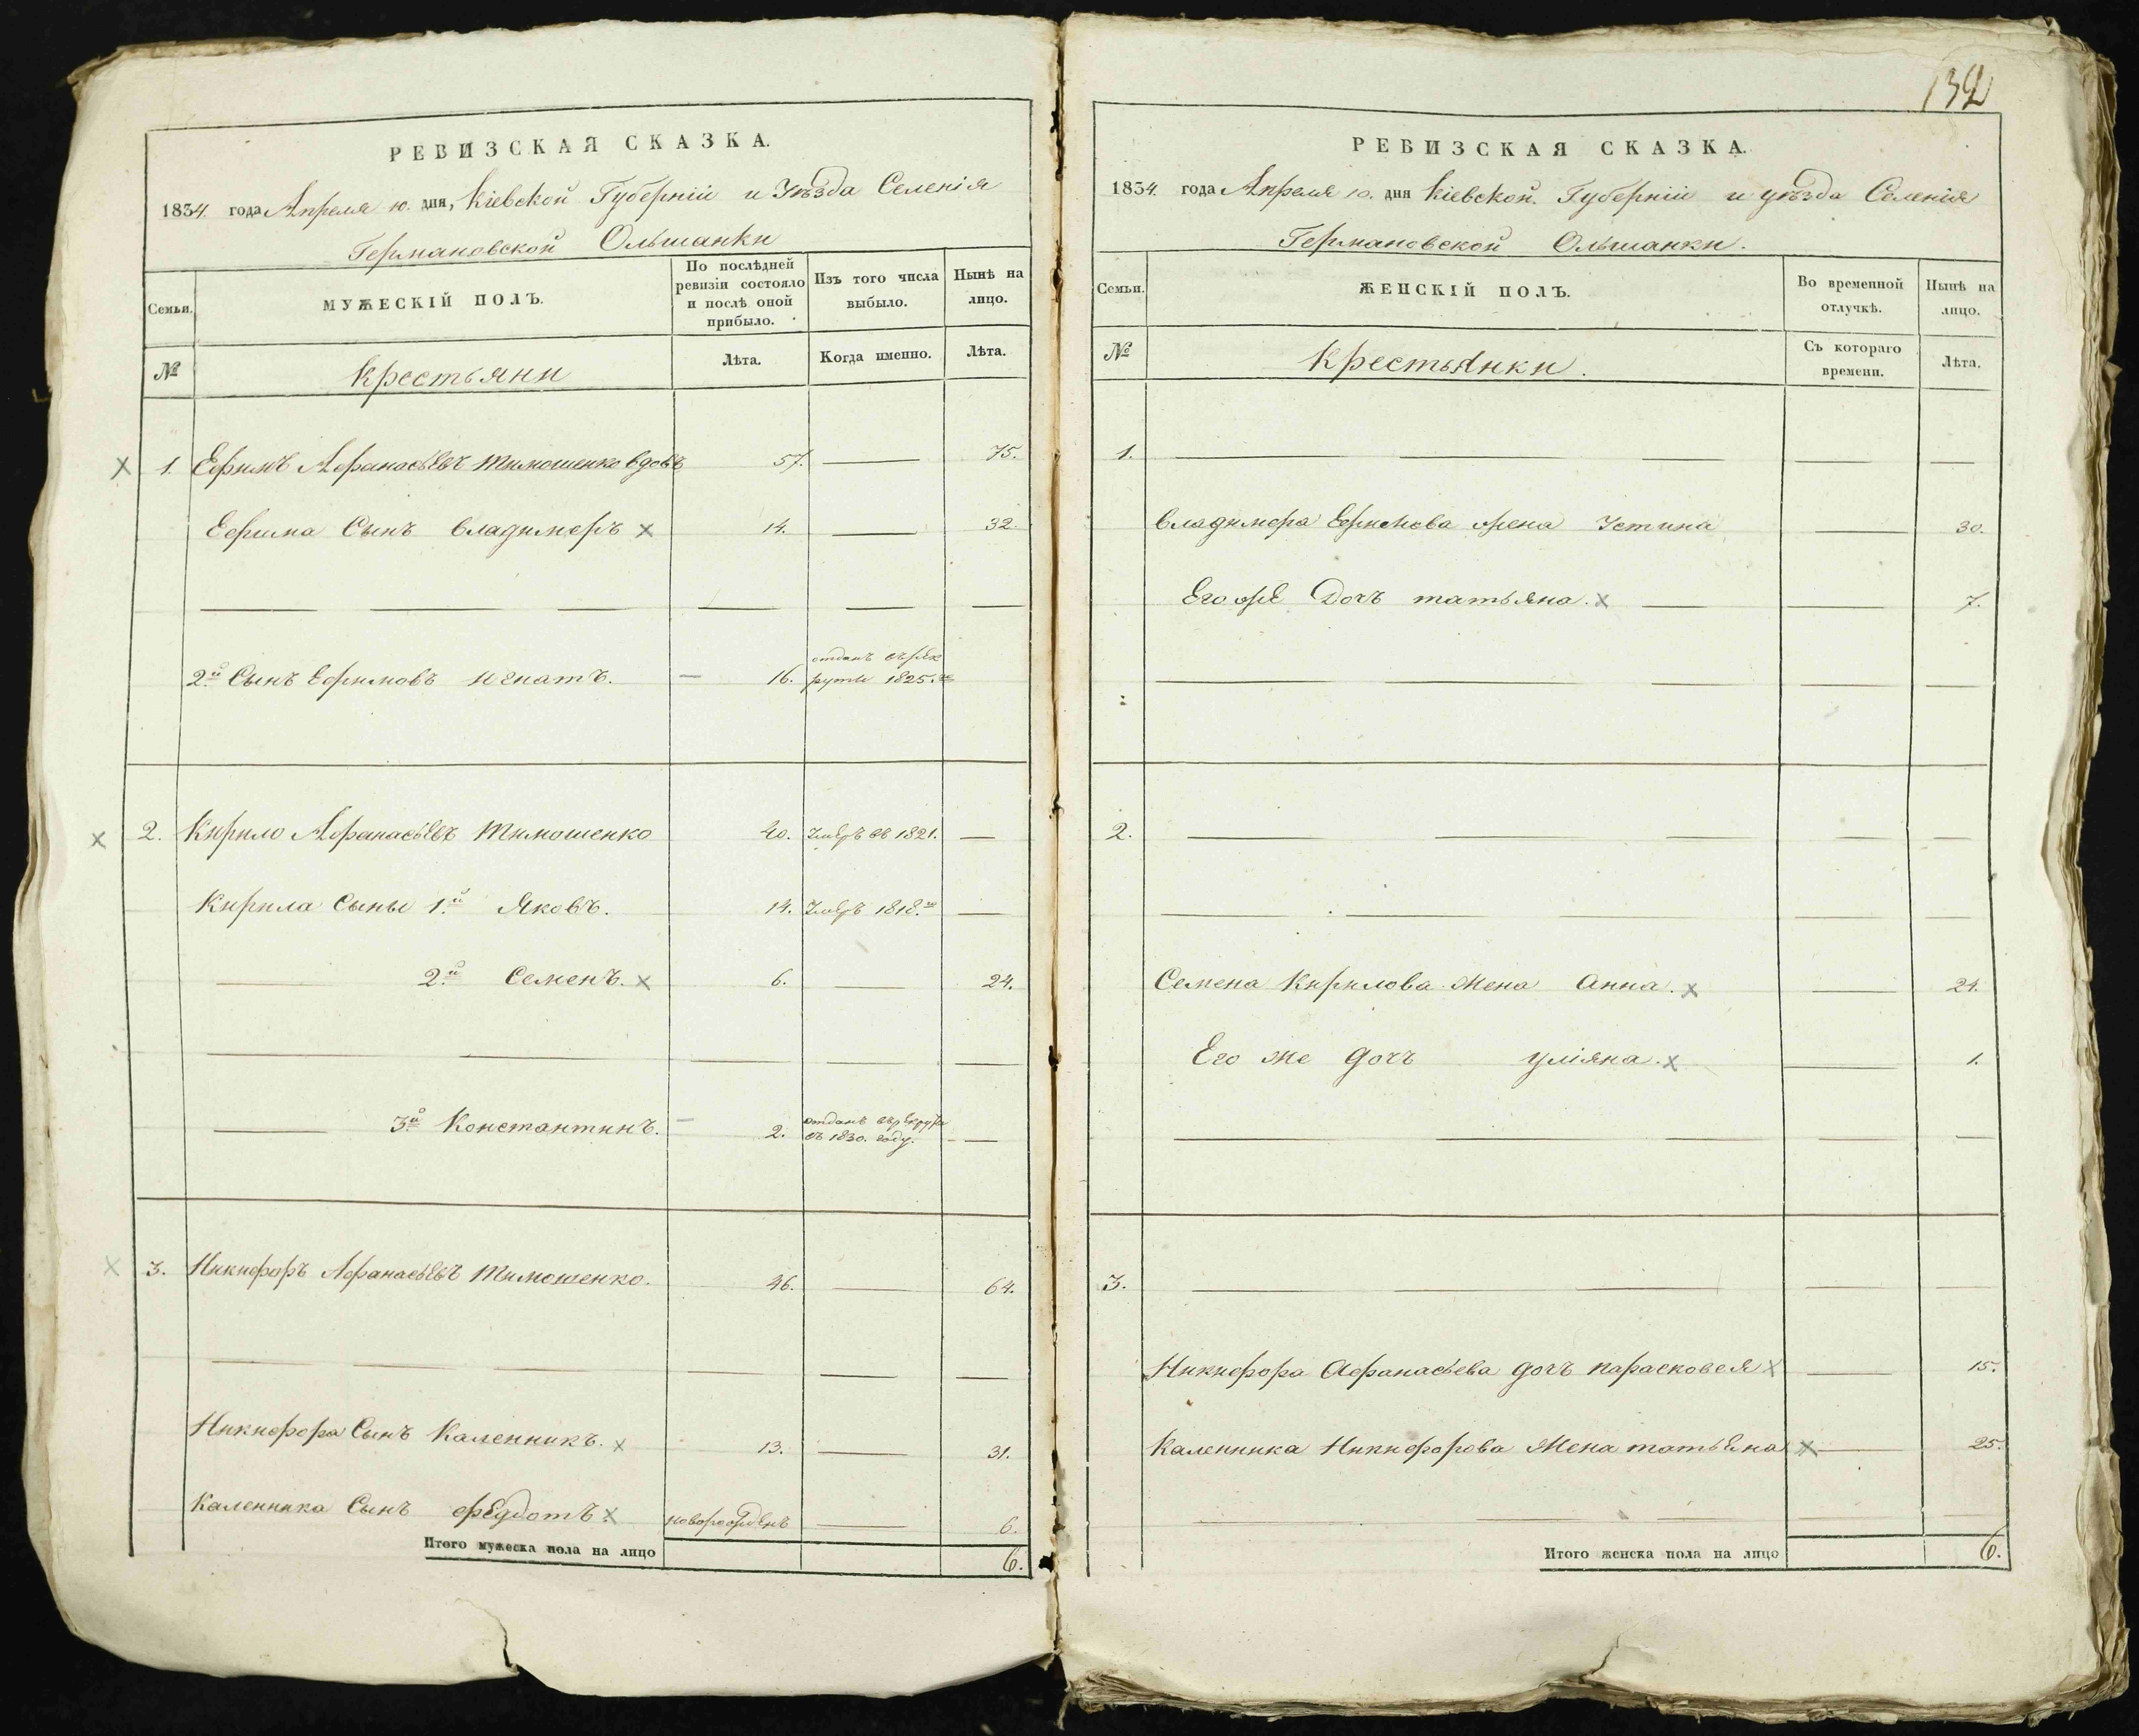 132
РЕВИЗСКАЯ СКАЗКА.
1834. года Апреля 10. дня, Кіевской Губерніи и Уѣзда Селенія
Германовской Ольшанки
Семьи.
МУЖЕСКІЙ ПОЛЪ.
По послѣдней
ревизіи состояло
и послѣ оной
прибыло.
Изъ того числа
выбыло.
Нынѣ на
лицо.
№
Крестьяни
Лѣта.
Когда именно.
Лѣта.
1. Ефимъ Афанасьевъ Тимошенко вдовъ 57. 75.
Ефима Сынъ Владимеръ 14. 32.
2й Сынъ Ефимовъ Игнатъ. 16. отданъ въ рек
руты 1825.го
2. Кирило Афанасьевъ Тимошенко 40. Умеръ въ 1821.
Кирила Сыны 1.й Яковъ. 14. Умеръ 1818.го
2.й Семенъ. 6. 24.
3й Константинъ. 2. отданъ въ рекруты
въ 1830. году.
3. Никифоръ Афанасьевъ Тимошенко. 46. 64.
Никифора Сынъ Каленникъ. 13. 31.
Каленника Сынъ Федотъ новорожденъ 6.
Итого мужеска пола на лицо 6.
РЕВИЗСКАЯ СКАЗКА.
1834. года Апреля 10. дня Кіевской. Губерніи и уѣзда Селенія
Германовской Ольшанки.
Семьи.
ЖЕНСКІЙ ПОЛЪ.
Во временной
отлучкѣ.
Нынѣ на
лицо.
№
Крестьянки.
Съ котораго
времени.
Лѣта.
1.
Владимера Ефимова жена Устина 30.
Его же Дочъ татьяна. 7.
2.
Семена Кирилова жена Анна. 24.
Его же дочъ уліяна. 1.
3.
Никифора Афанасьева дочъ парасковея 15.
Каленника Никифорова жена татьяна 25.
Итого женска пола на лицо 6.